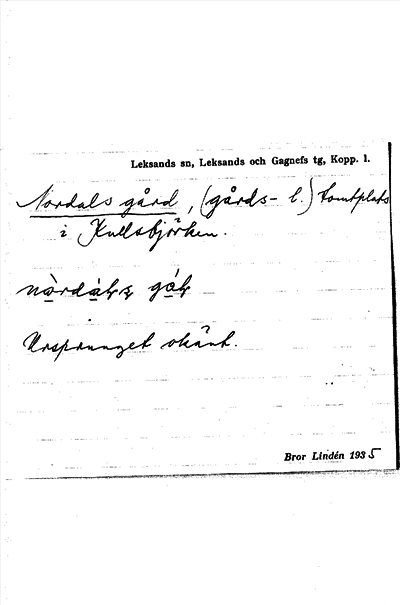 Leksands sn, Leksands och Gagnefs tg, Kopp. l.
Nordals gård, (gårds- l.) tomtplats
i Kullsbjörken.
Ursprunget okänt.
Bror Lindén 1935